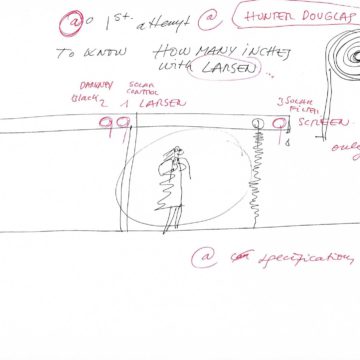 @ 1st attempt @ HUNTER DOUGLAS
TO KNOW HOW MANY INCHES
with LARSEN...
SOLAR CONTROL
Black 2 1 LARSEN
3 SOLAR FILTER
SCREEN
only
@ specifications